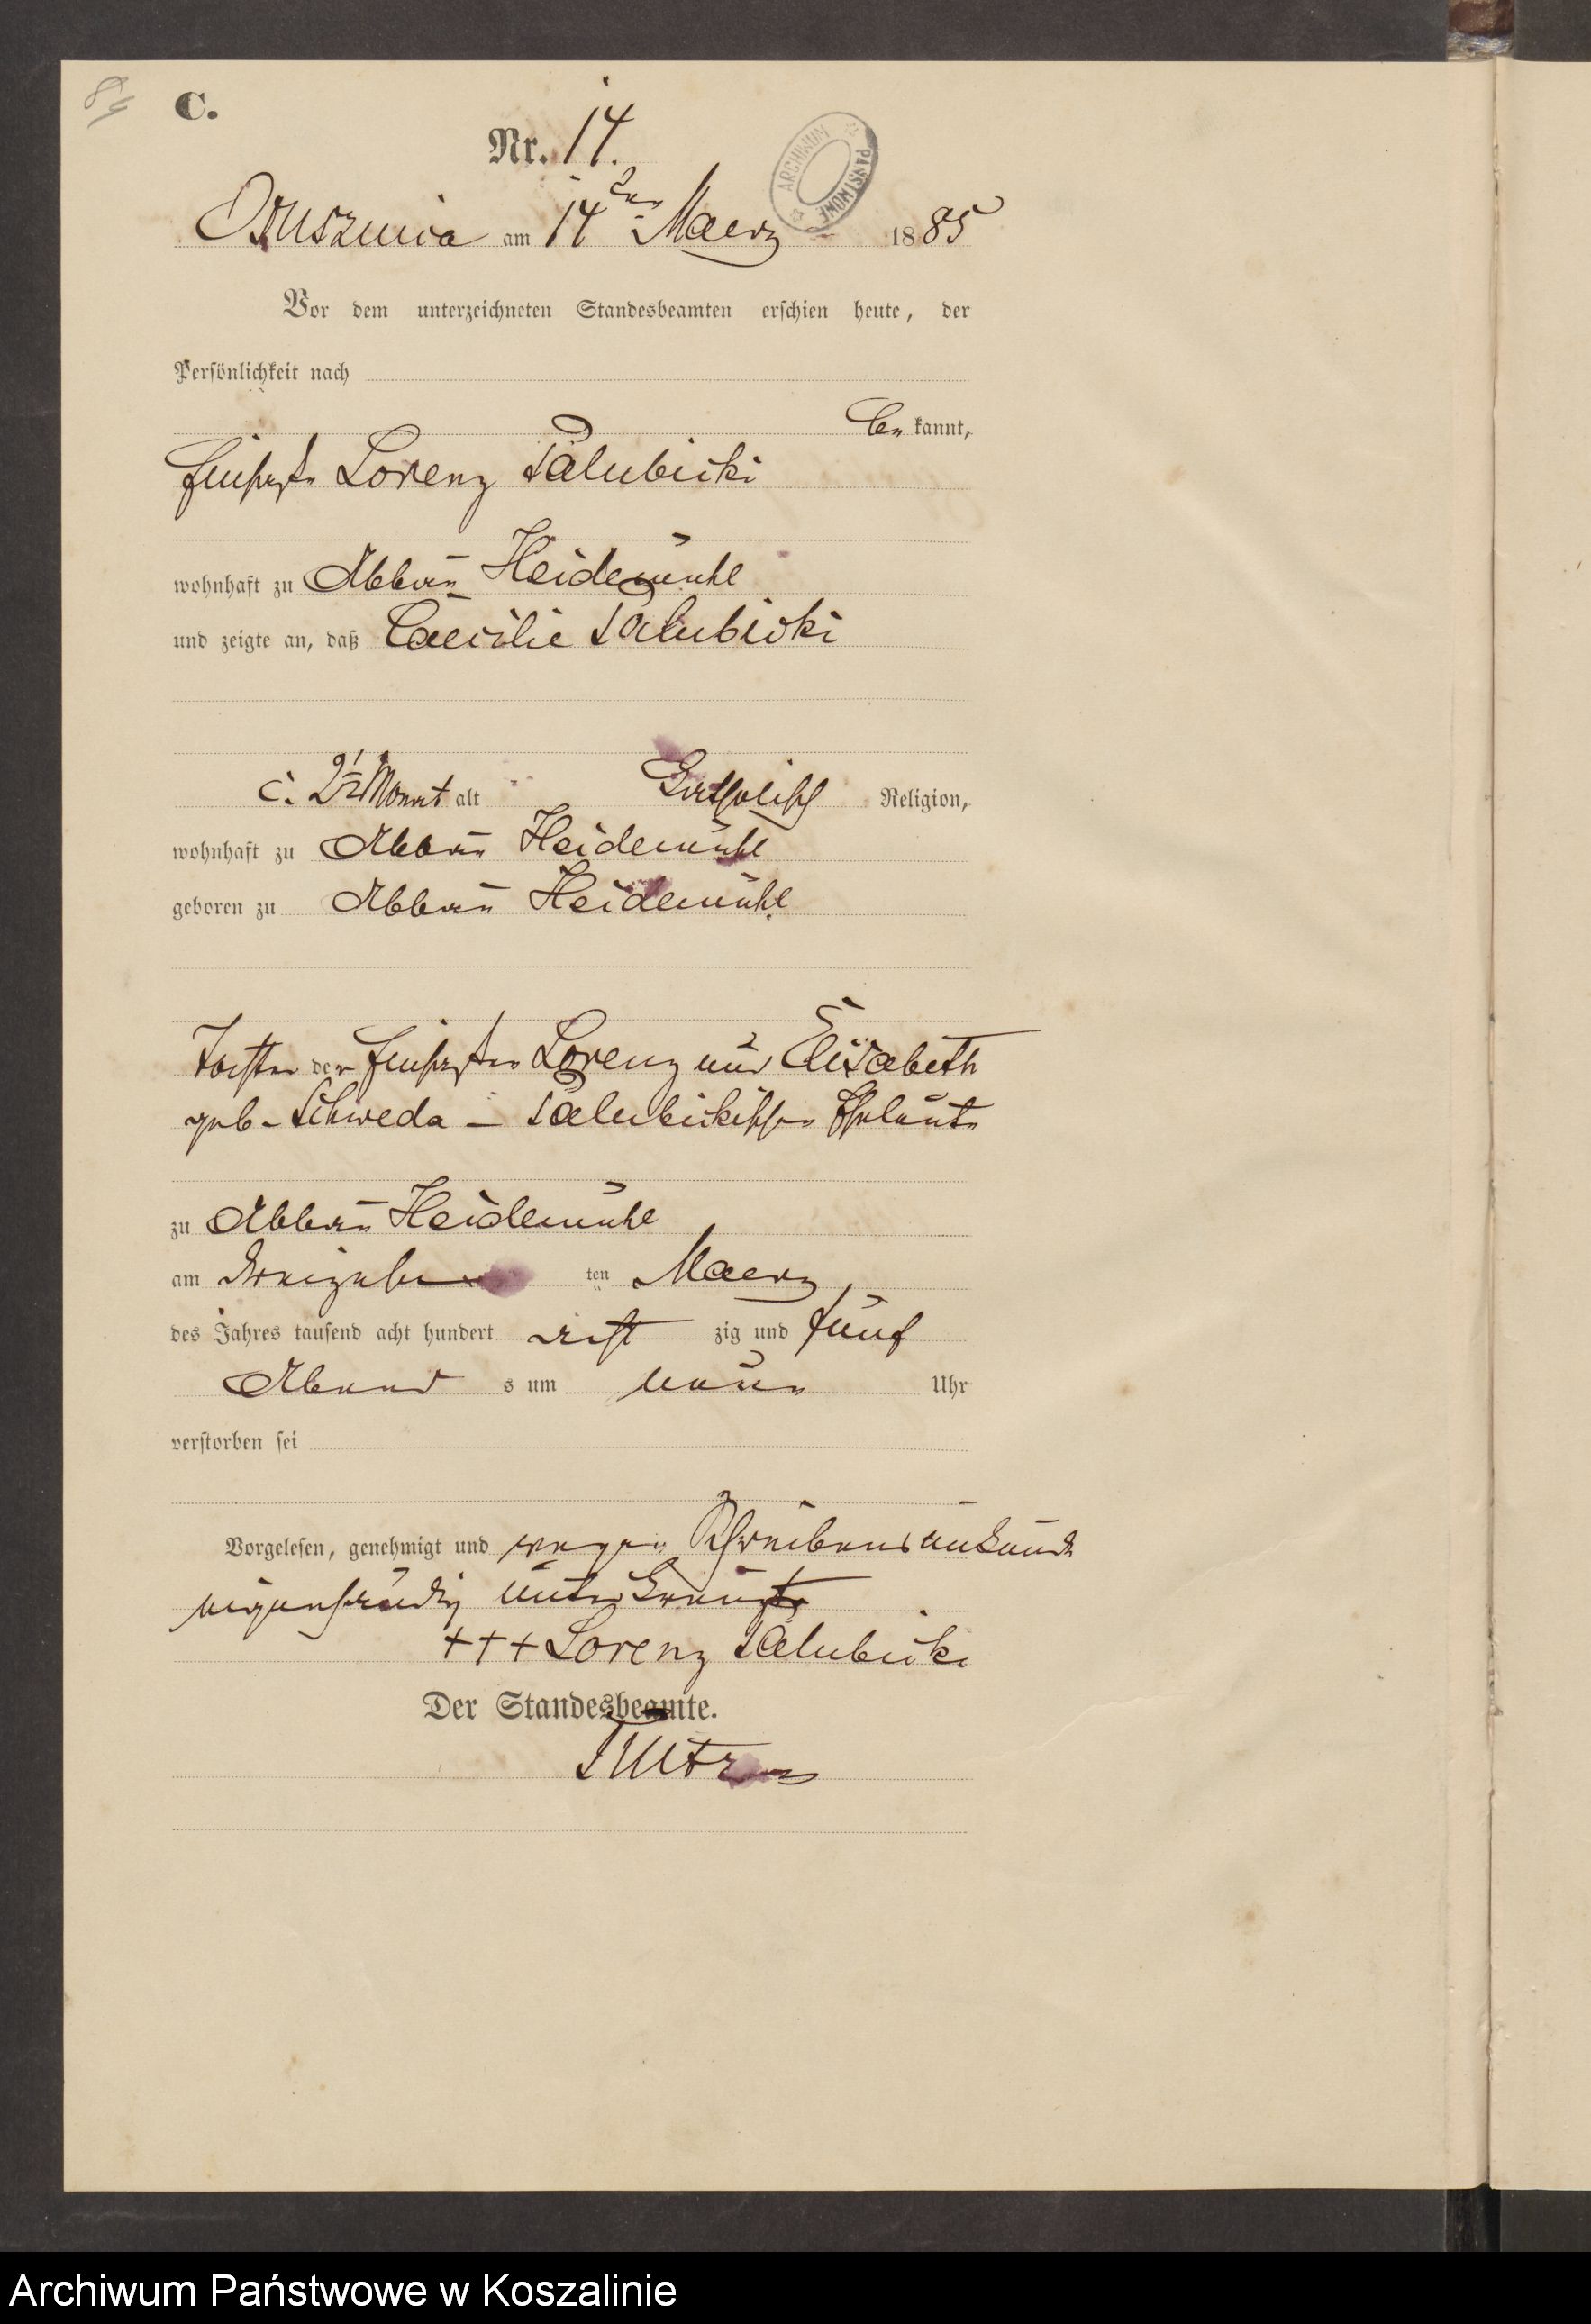 C.
Nr. 14.
ARCHIWUM PAŃSTWOWE
Osusznica am 14ten Maerz 1885
Vor dem unterzeichneten Standesbeamten erschien heute, der
Persönlichkeit nach
be kannt,
Lorenz Salubicki
wohnhaft zu Abbau Heidemühl
und zeigte an, daß Caecilie Salubicki
c. 2½ Monat alt katholisch Religion,
wohnhaft zu Abbau Heidemühl
geboren zu Abbau Heidemühl
Tochter der Lorenz und Elisabeth
geb. Schweda – Salubickischen Eheleute
zu Abbau Heidemühl
am Dreizehn ten Maerz
des Jahres tausend acht hundert acht zig und fünf
Abend s um neun Uhr
verstorben sei
Vorgelesen, genehmigt und wegen Schreibensunkunde
eigenhändig unterkreuzt
+++ Lorenz Salubicki
Der Standesbeamte.
Archiwum Państwowe w Koszalinie